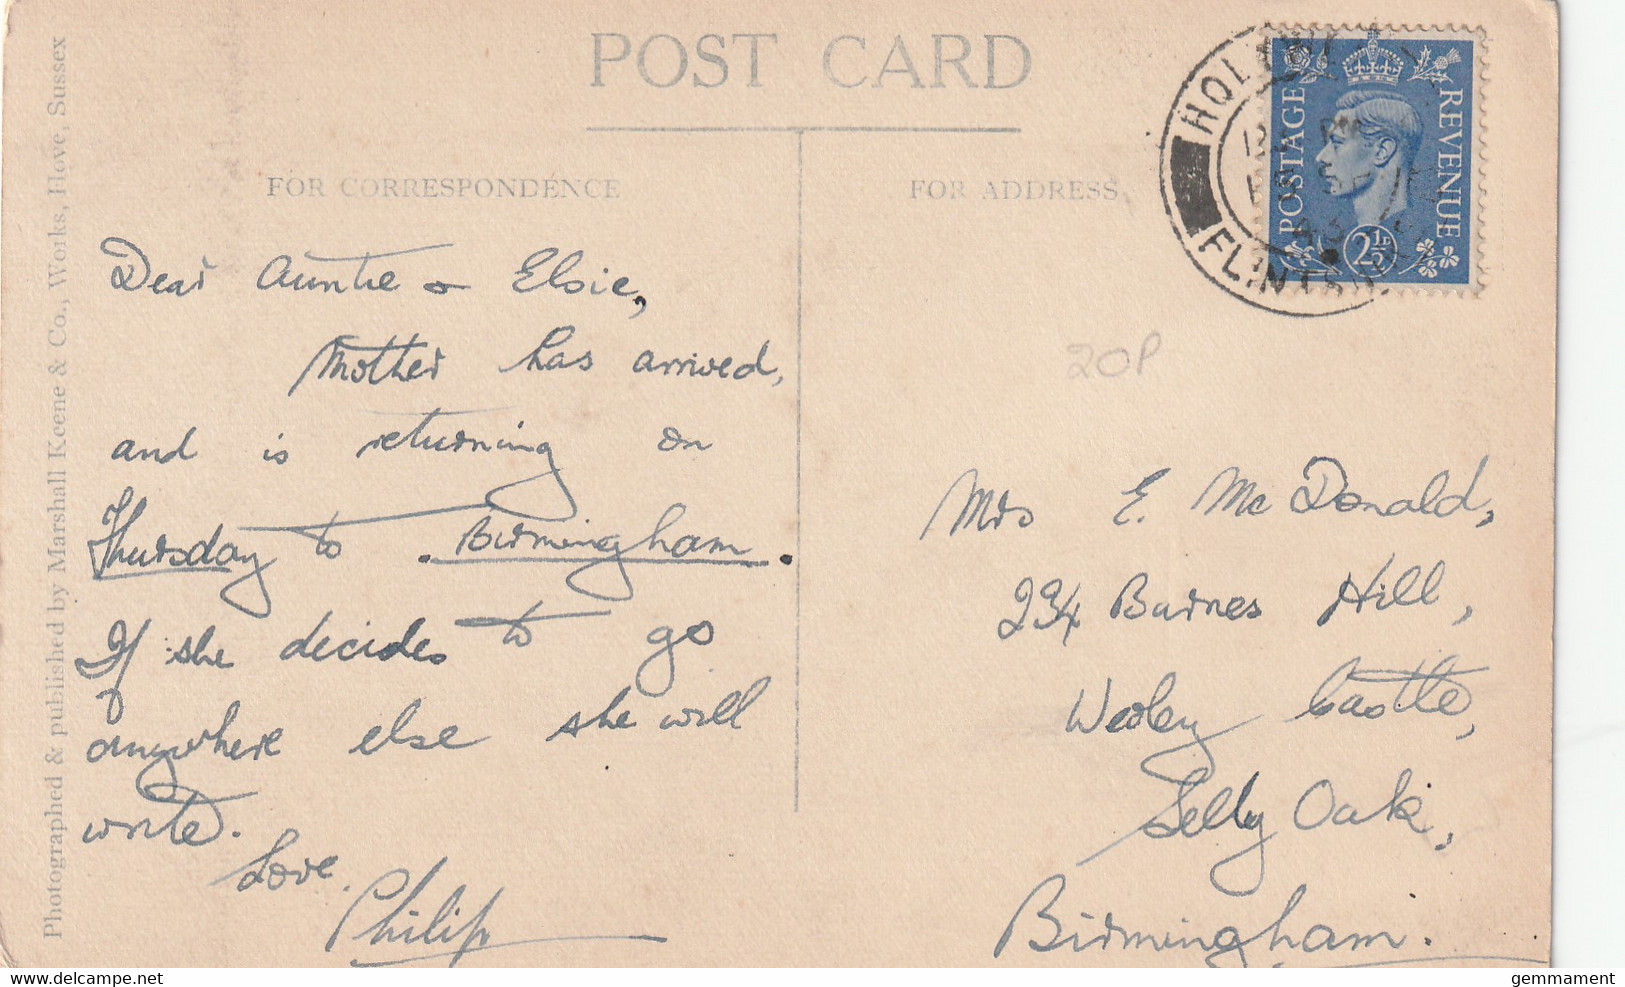 POST CARD
FOR CORRESPONDENCE
FOR ADDRESS
Photographed & published by Marshall Keene & Co., Works, Hove, Sussex
Dear Auntie & Elsie,
Mother has arrived,
and is returning on
Thursday to Birmingham.
If she decides to go
anywhere else she will
write.
Love.
Philip
POSTAGE
REVENUE
2½D
FLINTSHIRE
20P
Mrs E. McDonald,
294 Barnes Hill,
Weoley Castle,
Selly Oak,
Birmingham.
gemmament